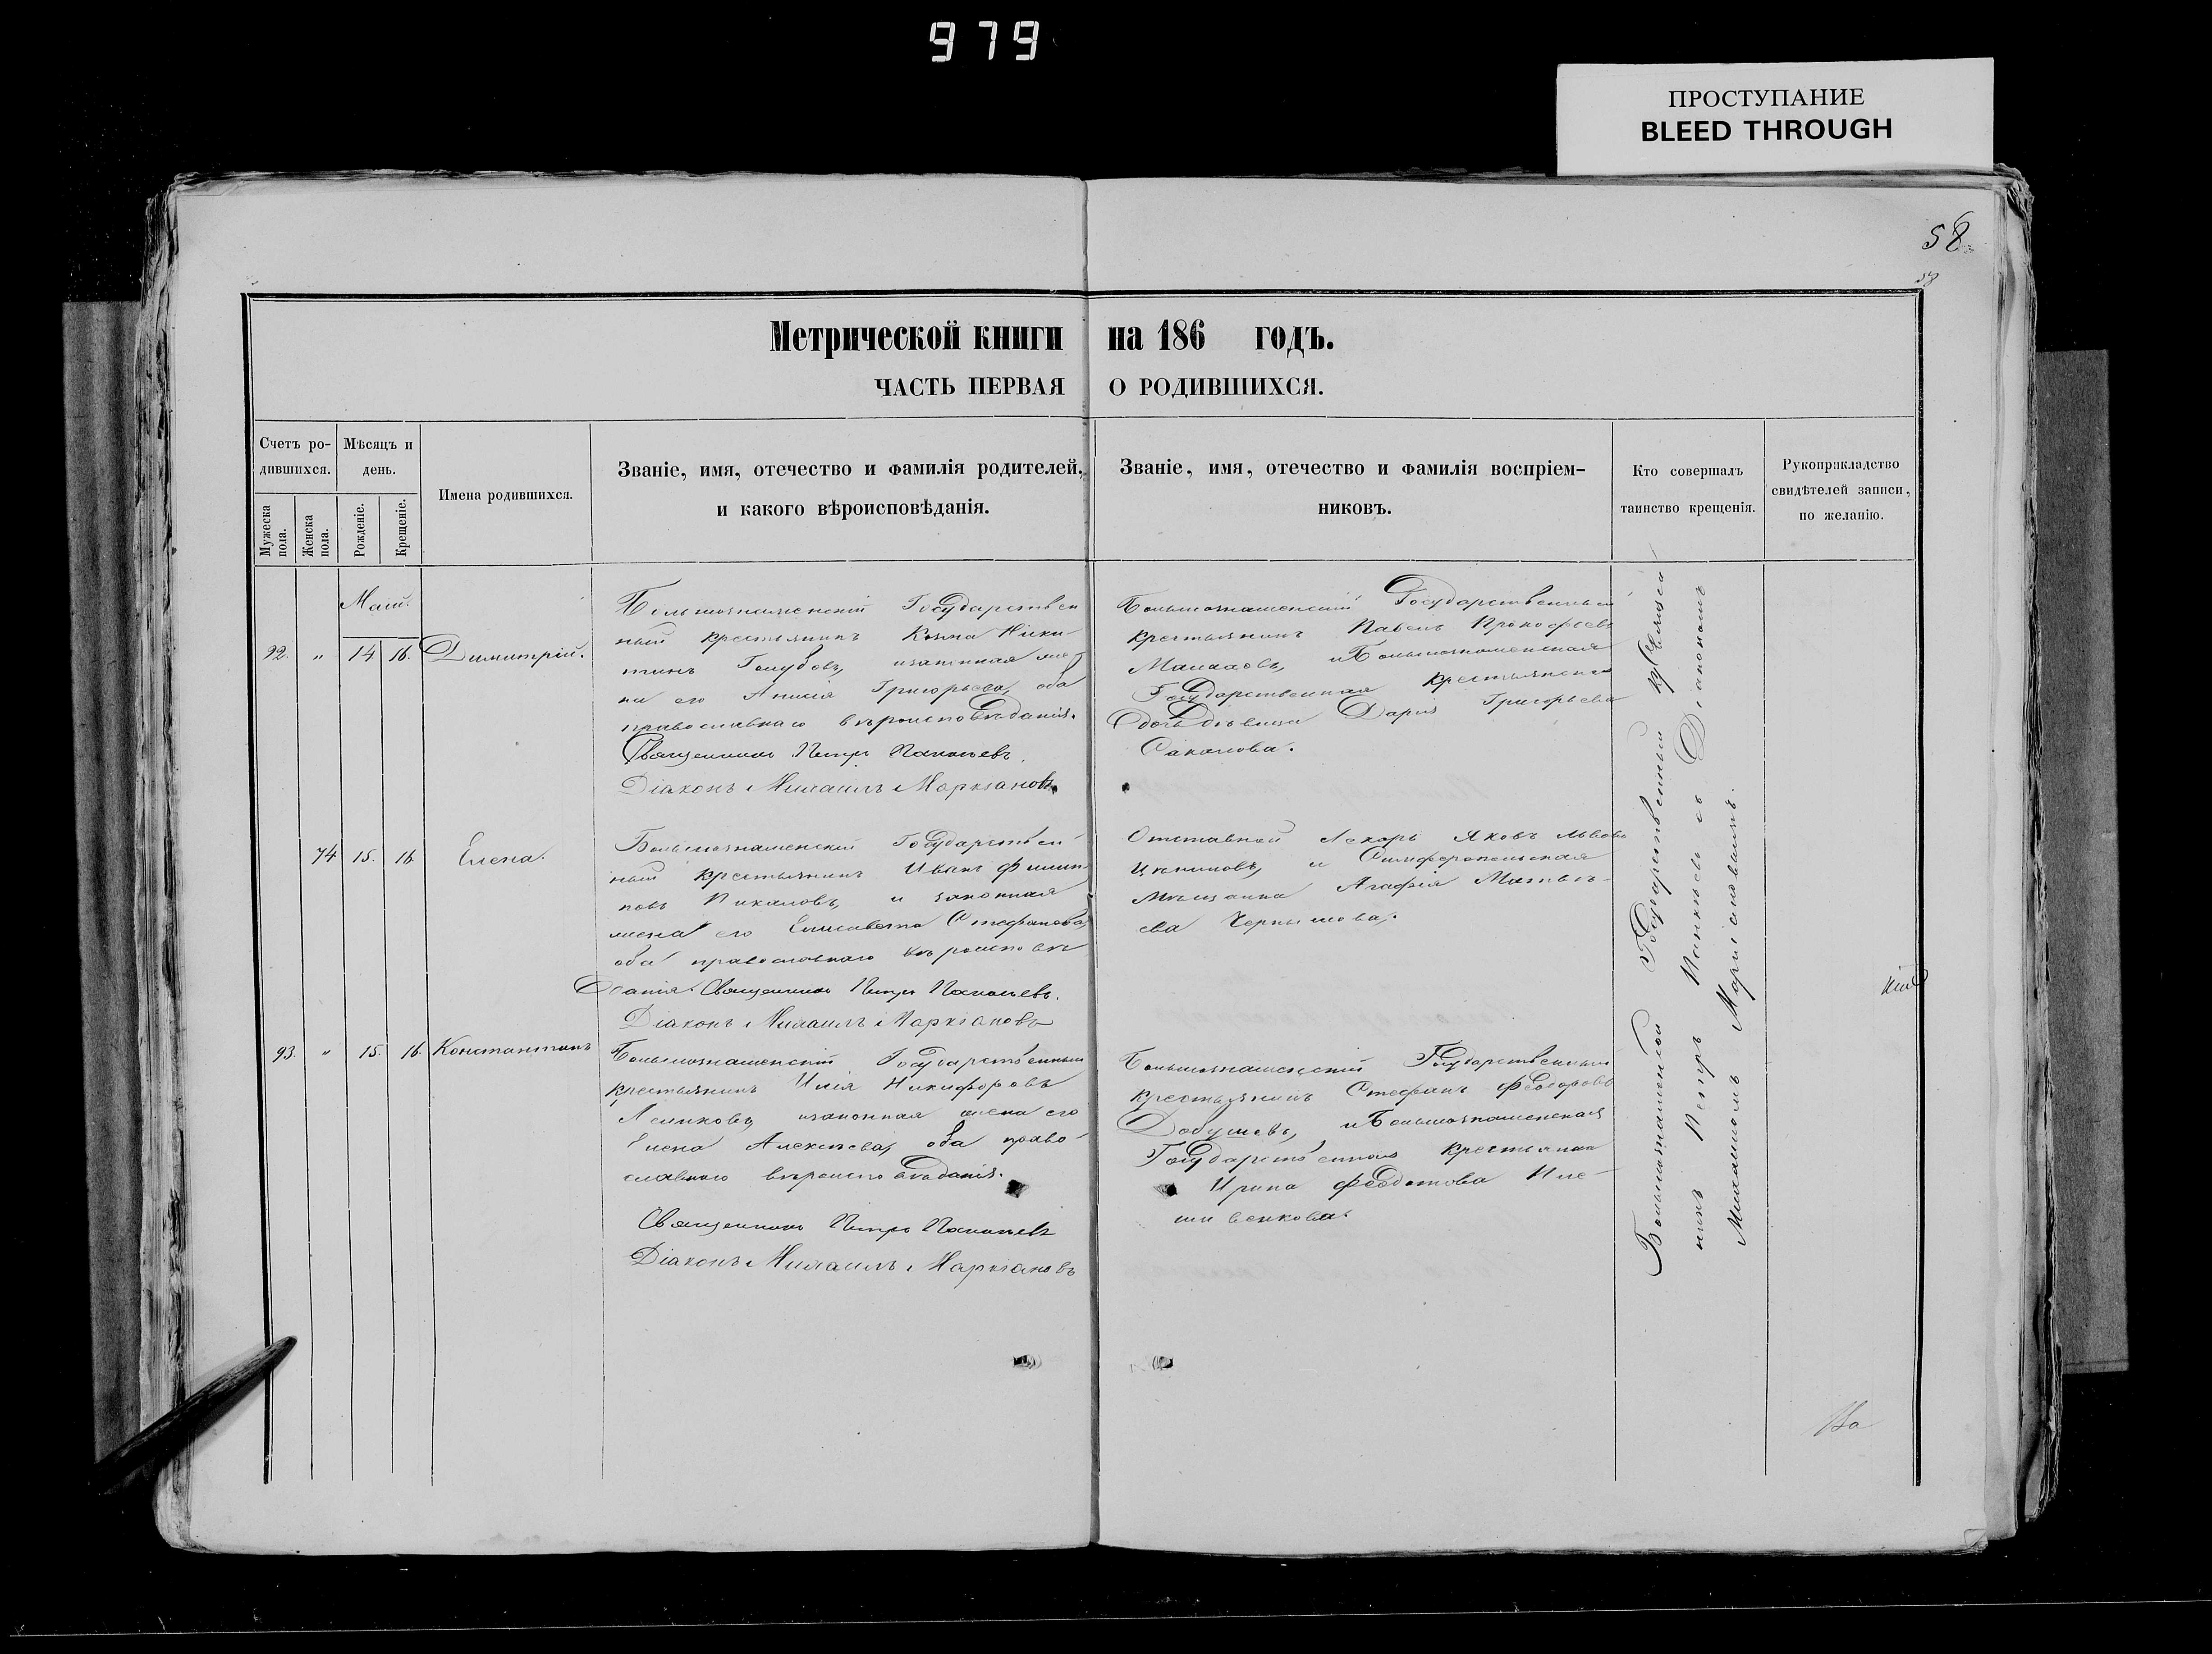 979
ПРОСТУПАНИЕ
BLEED THROUGH
58
Метрической книги на 186 годъ.
ЧАСТЬ ПЕРВАЯ О РОДИВШИХСЯ.
Счетъ ро-
дившихся.
Мужеска
пола.
Женска
пола.
Мѣсяцъ и
день.
Рожденіе.
Крещеніе.
Имена родившихся.
Званіе, имя, отечество и фамилія родителей,
и какого вѣроисповѣданія.
Званіе, имя, отечество и фамилія воспріем-
никовъ.
Кто совершалъ
таинство крещенія.
Рукоприкладство
свидѣтелей записи,
по желанію.
Маій
92. " 14 16. Димитрій.
Большознаменскій Государствен
ный крестьянинъ Козма Ники-
тинъ Голубовъ, изаконная же-
на его Анисія Григорьева, оба
православнаго вѣроисповѣданія.
Священникъ Петръ
Діаконъ Михаилъ Маркіановъ
Большознаменскій Государственный
крестьянинъ Павелъ Прокофьевъ
иБольшознаменская
Государственная крестьянская
дочь дѣвица Дарія Григорьева
Саканова.
74 15. 16. Елена.
Большознаменскій Государствен
ный крестьянинъ Иванъ Филип-
повъ Пикаловъ, и законная
жена его Елисавета Стефанова,
оба православнаго вѣроисповѣ
данія. Священникъ Петръ
Діаконъ Михаилъ Маркіановъ
Отставной Лекарь Яковъ Львовъ
и Симферопольская
мѣщанка Агафія Матвѣ-
ева Чернышова.
93. " 15. 16. Константинъ
Большознаменскій Государственный
крестьянинъ Илія Никифоровъ
изаконная жена его
Елена Алексѣева, оба право-
славнаго вѣроисповѣданія.
Священникъ Петръ
Діаконъ Михаилъ Маркіановъ
Большознаменскій Государственный
крестьянинъ Стефанъ Феодоровъ
иБольшознаменская
Государственная крестьянка
Ирина Феодотова
Большознаменской
никъ Петръ съ Діакономъ
Михаиломъ Маркіановымъ.